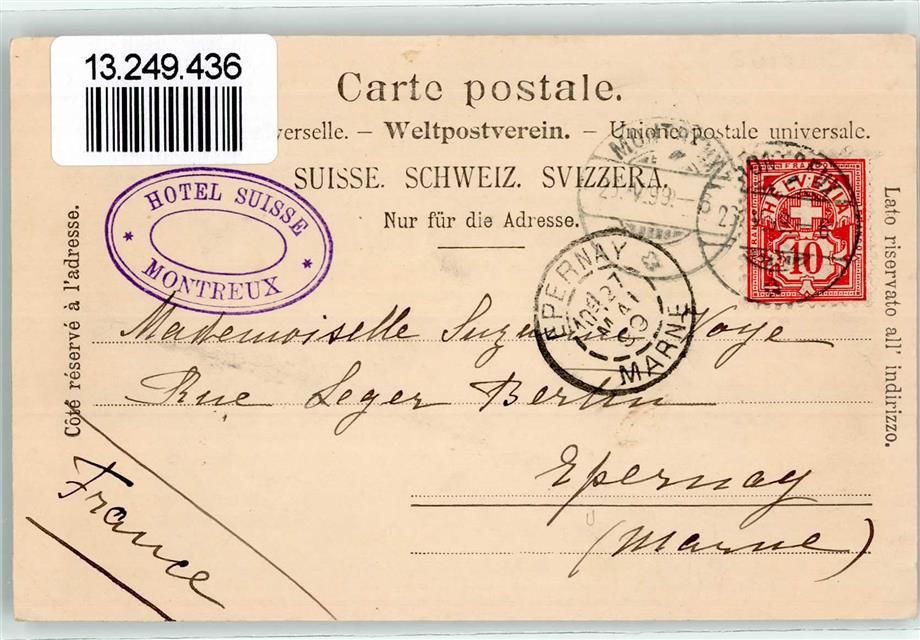 13.249.436
Carte postale.
verselle. – Weltpostverein. – Unione postale universale.
SUISSE. SCHWEIZ. SVIZZERA.
Nur für die Adresse.
Côté réservé à l'adresse.
Lato riservato all' indirizzo.
HOTEL SUISSE
* *
MONTREUX
MONTREUX
99
HELVETIA
FRANCO
10
EPERNAY
27
MAI
99
MARNE
Mademoiselle Suzanne Voye
Rue Leger Bertin
Epernay
(Marne)
France